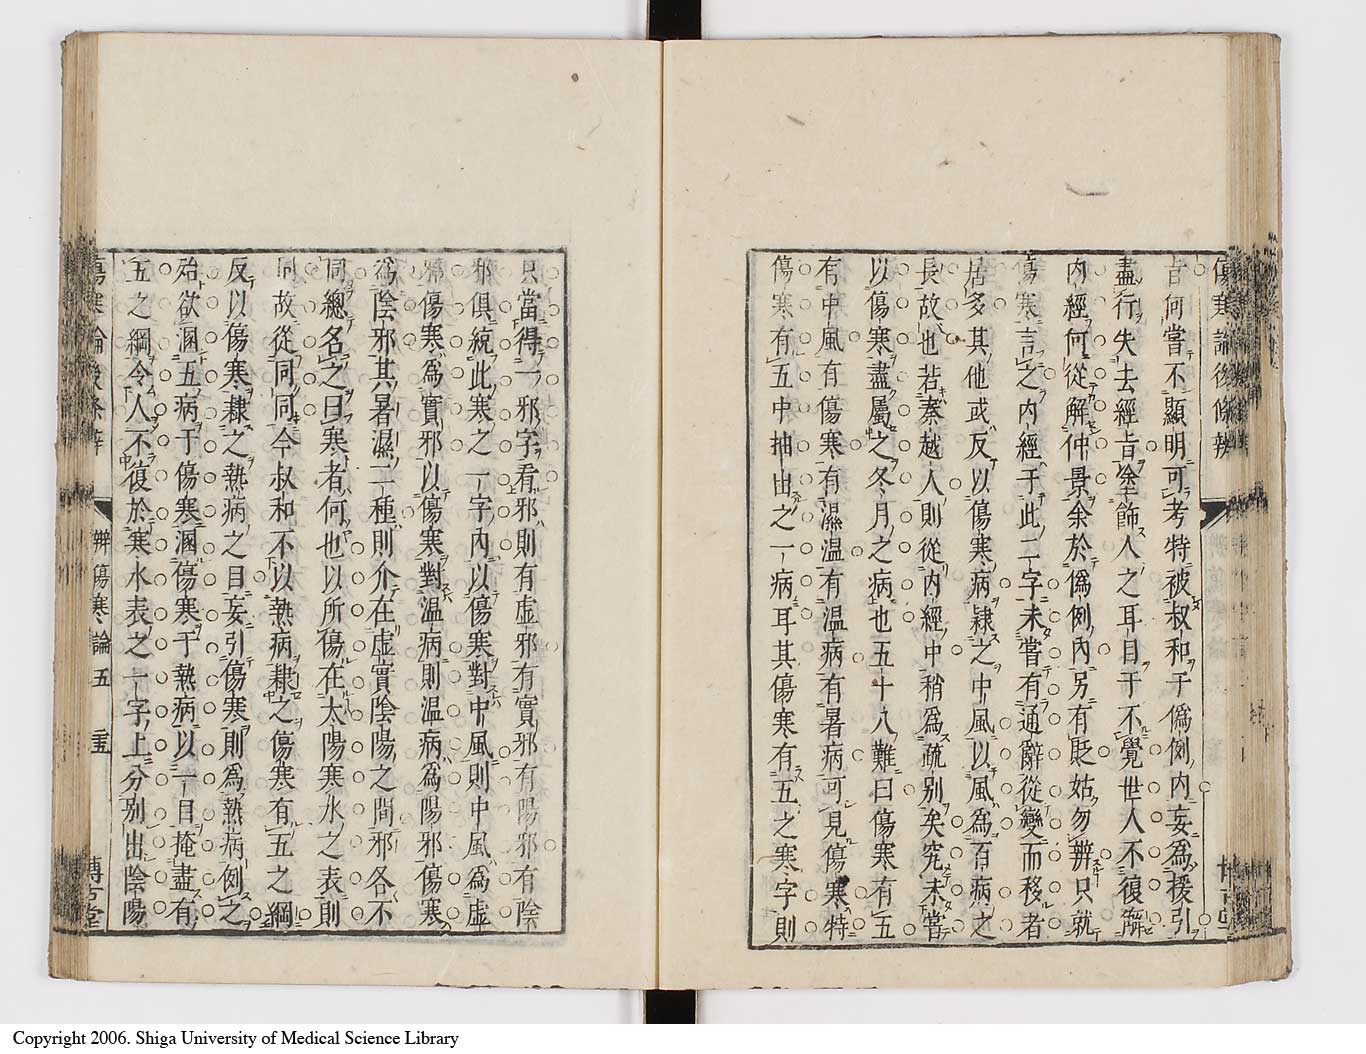 傷寒論後條辨
旨何嘗不顯明可考特被叔和于僞例內妄爲援引
盡行失去經旨塗飾人之耳目于不覺世人不復解
內經何從解仲景余於僞例內另有貶姑勿辨只就
傷寒言之內經于此二字未嘗有通辭從變而移者
居多其他或反以傷寒病隷之中風以風爲百病之
長故也若秦越人則從內經中稍爲疏別矣究未嘗
以傷寒盡屬之冬月之病也五十八難曰傷寒有五
有中風有傷寒有濕溫有溫病有暑病可見傷寒特
傷寒有五中抽出之一病耳其傷寒有五之寒字則
只當得一邪字看邪則有虛邪有實邪有陽邪有陰
邪俱統此寒之一字內以傷寒對中風則中風爲虛
邪傷寒爲實邪以傷寒對溫病則溫病爲陽邪傷寒
爲陰邪其暑濕二種則介在虛實陰陽之間邪各不
同總名之曰寒者何也以所傷在太陽寒水之表則
同故從同同今叔和不以熱病隷之傷寒有五之綱
反以傷寒隷之熱病之目妄引傷寒則爲熱病例之
殆欲溷五病于傷寒溷傷寒于熱病以一目掩盡有
五之綱令人不復於寒水表之一字上分別出陰陽
辨傷寒論五
博古堂
Copyright 2006. Shiga University of Medical Science Library